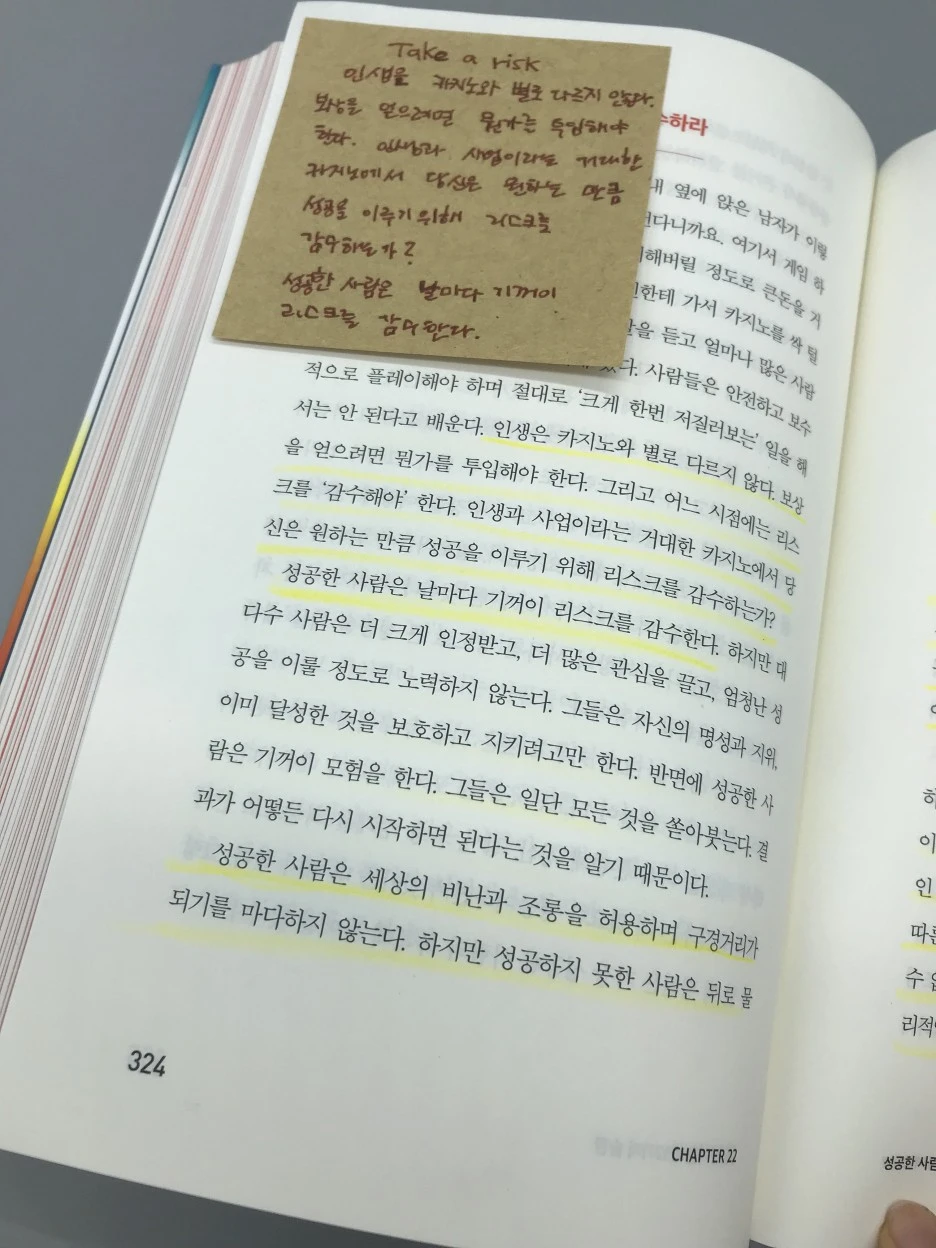 Take a risk
인생은 카지노와 별로 다르지 않다.
보상을 얻으려면 뭔가를 투입해야
한다. 인생과 사업이라는 거대한
카지노에서 당신은 원하는 만큼
성공을 이루기 위해 리스크를
감수하는가?
성공한 사람은 날마다 기꺼이
리스크를 감수한다.
수하라
내 옆에 앉은 남자가 이렇
다니까요. 여기서 게임 하
해버릴 정도로 큰돈을 거
한테 가서 카지노를 싹 털
을 듣고 얼마나 많은 사람
있다. 사람들은 안전하고 보수
적으로 플레이해야 하며 절대로 ‘크게 한번 저질러보는’ 일을 해
서는 안 된다고 배운다. 인생은 카지노와 별로 다르지 않다. 보상
을 얻으려면 뭔가를 투입해야 한다. 그리고 어느 시점에는 리스
크를 ‘감수해야’ 한다. 인생과 사업이라는 거대한 카지노에서 당
신은 원하는 만큼 성공을 이루기 위해 리스크를 감수하는가?
성공한 사람은 날마다 기꺼이 리스크를 감수한다. 하지만 대
다수 사람은 더 크게 인정받고, 더 많은 관심을 끌고, 엄청난 성
공을 이룰 정도로 노력하지 않는다. 그들은 자신의 명성과 지위,
이미 달성한 것을 보호하고 지키려고만 한다. 반면에 성공한 사
람은 기꺼이 모험을 한다. 그들은 일단 모든 것을 쏟아붓는다. 결
과가 어떻든 다시 시작하면 된다는 것을 알기 때문이다.
성공한 사람은 세상의 비난과 조롱을 허용하며 구경거리가
되기를 마다하지 않는다. 하지만 성공하지 못한 사람은 뒤로 물
324
CHAPTER 22
하
이
인
따른
수 없
리적
성공한 사람